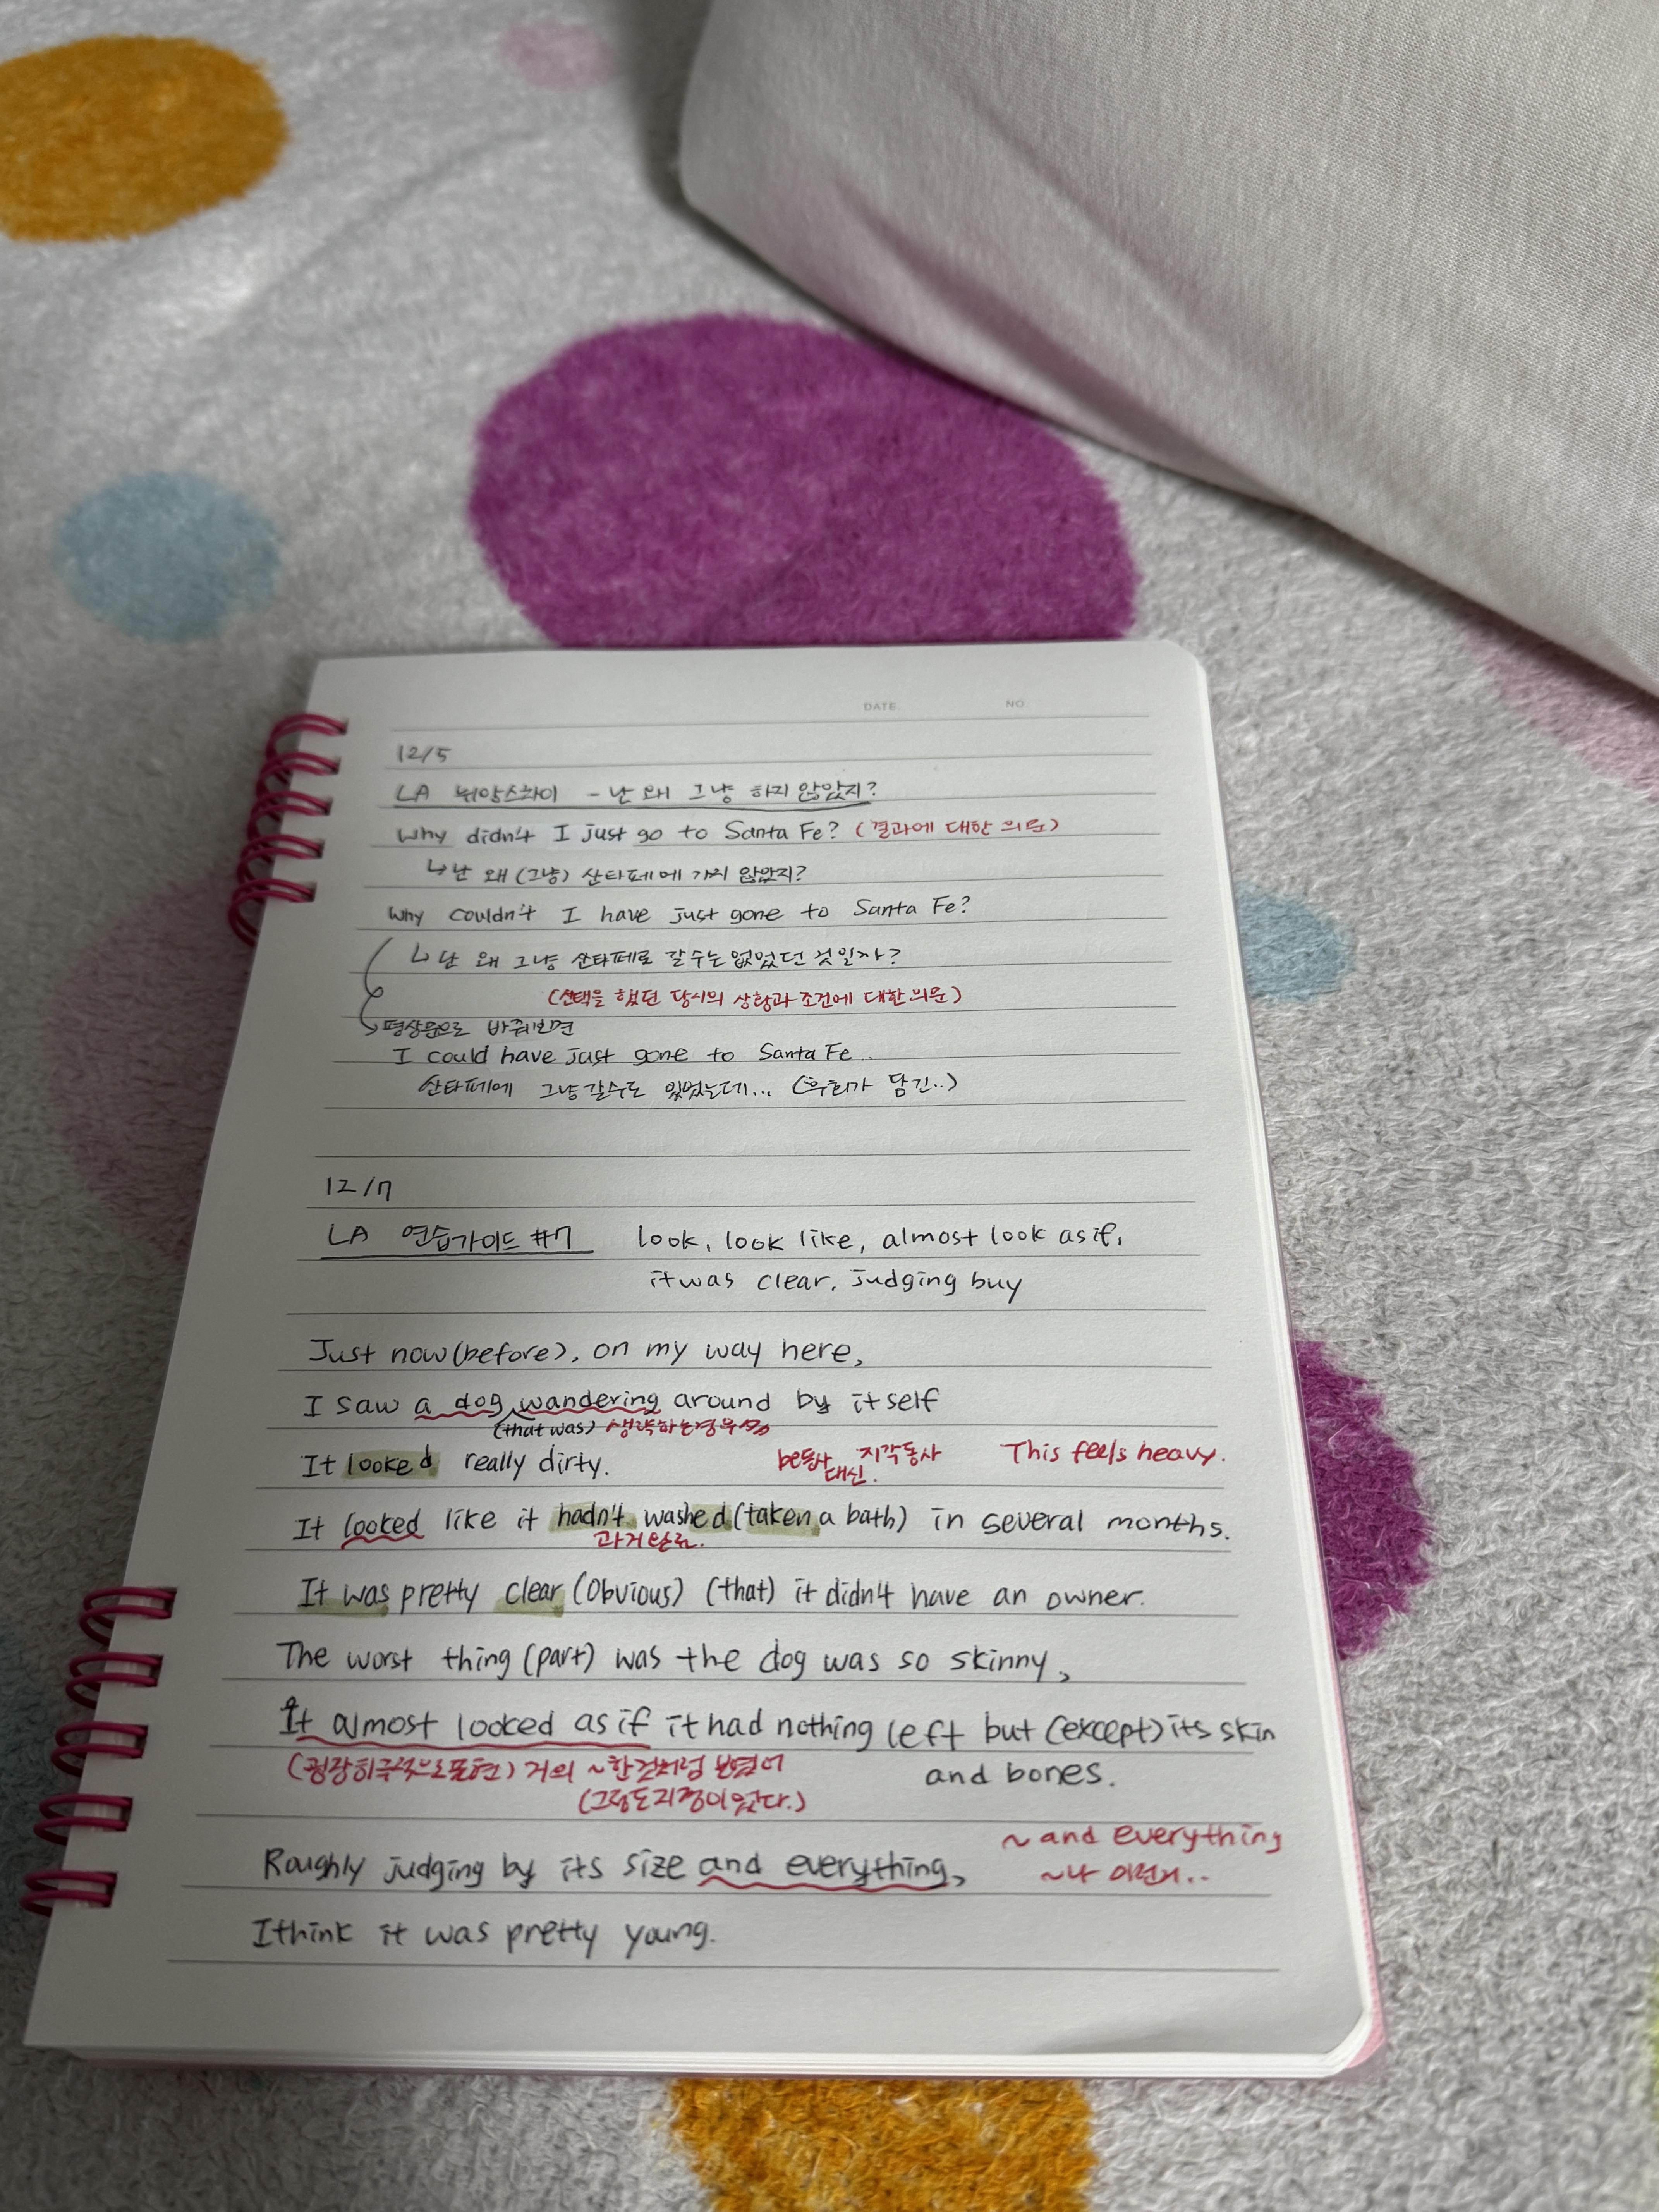 DATE. NO.
12/5
LA 뉘앙스차이 - 난 왜 그냥 하지 않았지?
Why didn't I just go to Santa Fe? (결과에 대한 의문)
↳난 왜 (그냥) 산타페에 가지 않았지?
Why couldn't I have just gone to Santa Fe?
↳난 왜 그냥 산타페로 갈수는 없었던 것일까?
(선택을 했던 당시의 상황과 조건에 대한 의문)
평상문으로 바꿔보면
I could have just gone to Santa Fe..
산타페에 그냥 갈수도 있었는데... (후회가 담긴..)
12/7
LA 연습가이드 #7 look, look like, almost look as if,
it was clear, judging buy
Just now(before), on my way here,
I saw a dog wandering around by itself
(that was) 생략하는경우
It looked really dirty. be동사 대신 지각동사 This feels heavy.
It looked like it hadn't washed (taken a bath) in several months.
과거완료.
It was pretty clear (obvious) (that) it didn't have an owner.
The worst thing (part) was the dog was so skinny,
It almost looked as if it had nothing left but (except) its skin
and bones.
(굉장히극적으로표현) 거의 ~한것처럼 보였어
(그정도지경이었다.)
~ and everything
Roughly judging by its size and everything,
~나 이런거..
I think it was pretty young.